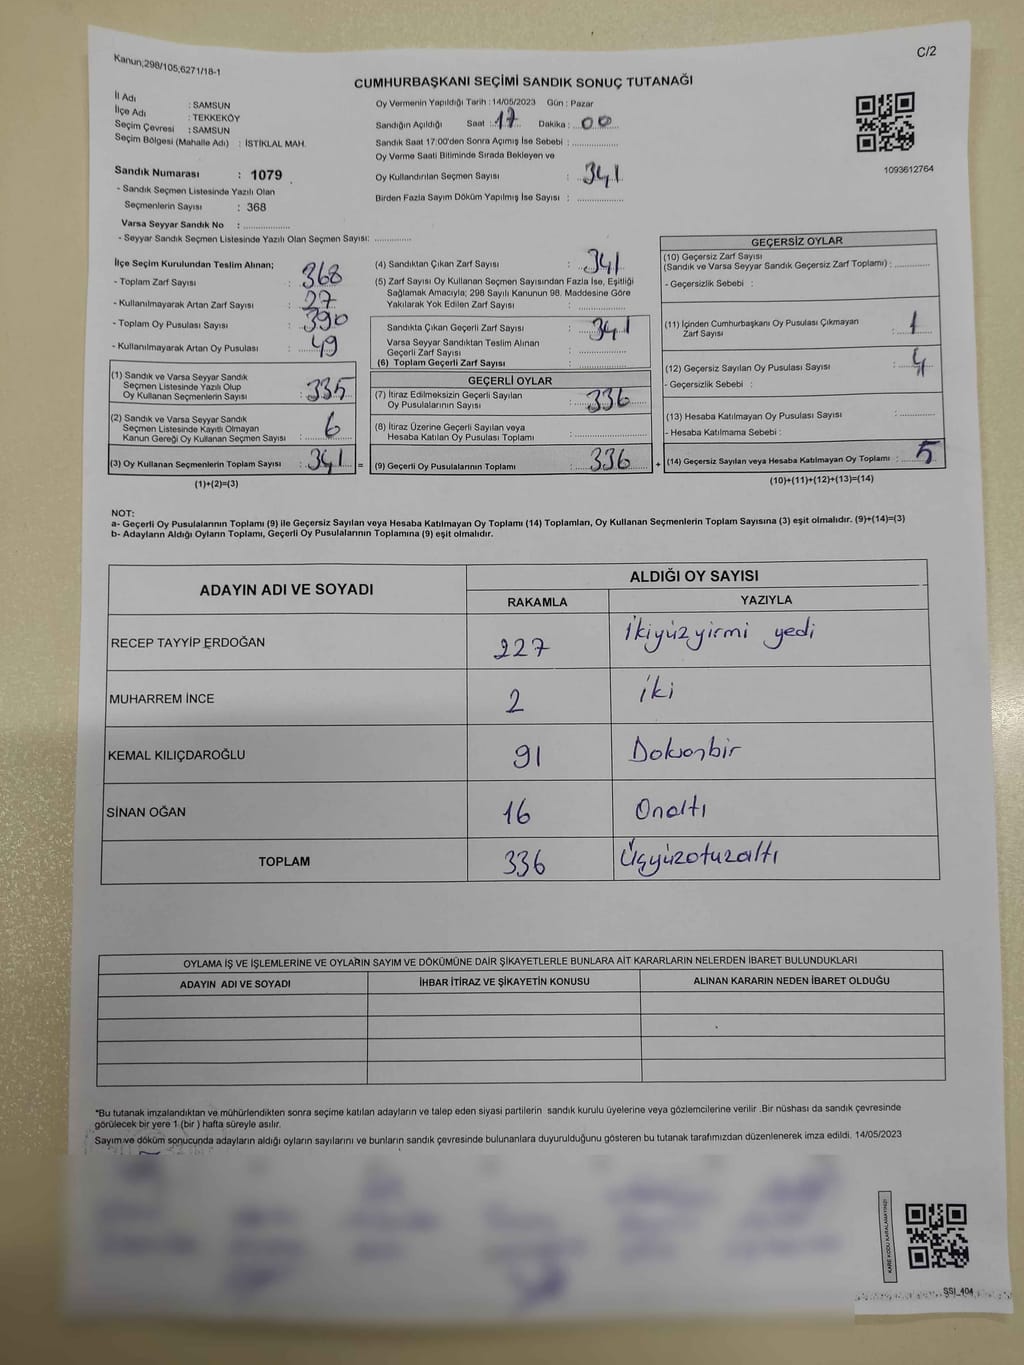 Kanun;298/105,6271/18-1
C/2
CUMHURBAŞKANI SEÇİMİ SANDIK SONUÇ TUTANAĞI
İl Adı : SAMSUN
İlçe Adı : TEKKEKÖY
Seçim Çevresi : SAMSUN
Seçim Bölgesi (Mahalle Adı) : İSTİKLAL MAH.
Sandık Numarası : 1079
- Sandık Seçmen Listesinde Yazılı Olan
Seçmenlerin Sayısı : 368
Varsa Seyyar Sandık No : ..................
- Seyyar Sandık Seçmen Listesinde Yazılı Olan Seçmen Sayısı: ..............
Oy Vermenin Yapıldığı Tarih : 14/05/2023 Gün : Pazar
Sandığın Açıldığı Saat : 17 Dakika : 00
Sandık Saat 17:00'den Sonra Açımış İse Sebebi : ..................
Oy Verme Saati Bitiminde Sırada Bekleyen ve
Oy Kullandırılan Seçmen Sayısı : 341
Birden Fazla Sayım Döküm Yapılmış İse Sayısı : ..................
1093612764
İlçe Seçim Kurulundan Teslim Alınan;
- Toplam Zarf Sayısı : 368
- Kullanılmayarak Artan Zarf Sayısı : 27
- Toplam Oy Pusulası Sayısı : 390
- Kullanılmayarak Artan Oy Pusulası : 49
(1) Sandık ve Varsa Seyyar Sandık
Seçmen Listesinde Yazılı Olup
Oy Kullanan Seçmenlerin Sayısı : 335
(2) Sandık ve Varsa Seyyar Sandık
Seçmen Listesinde Kayıtlı Olmayan
Kanun Gereği Oy Kullanan Seçmen Sayısı : 6
(3) Oy Kullanan Seçmenlerin Toplam Sayısı : 341 =
(1)+(2)=(3)
(4) Sandıktan Çıkan Zarf Sayısı : 341
(5) Zarf Sayısı Oy Kullanan Seçmen Sayısından Fazla İse, Eşitliği
Sağlamak Amacıyla; 298 Sayılı Kanunun 98. Maddesine Göre
Yakılarak Yok Edilen Zarf Sayısı : ..................
Sandıkta Çıkan Geçerli Zarf Sayısı : 341
Varsa Seyyar Sandıktan Teslim Alınan
Geçerli Zarf Sayısı : ..................
(6) Toplam Geçerli Zarf Sayısı : ..................
GEÇERLİ OYLAR
(7) İtiraz Edilmeksizin Geçerli Sayılan
Oy Pusulalarının Sayısı : 336
(8) İtiraz Üzerine Geçerli Sayılan veya
Hesaba Katılan Oy Pusulası Toplamı : ..................
(9) Geçerli Oy Pusulalarının Toplamı : 336 +
GEÇERSİZ OYLAR
(10) Geçersiz Zarf Sayısı
(Sandık ve Varsa Seyyar Sandık Geçersiz Zarf Toplamı) : ............
- Geçersizlik Sebebi :
(11) İçinden Cumhurbaşkanı Oy Pusulası Çıkmayan
Zarf Sayısı : 1
(12) Geçersiz Sayılan Oy Pusulası Sayısı : 4
- Geçersizlik Sebebi :
(13) Hesaba Katılmayan Oy Pusulası Sayısı : ............
- Hesaba Katılmama Sebebi :
(14) Geçersiz Sayılan veya Hesaba Katılmayan Oy Toplamı : 5
(10)+(11)+(12)+(13)=(14)
NOT:
a- Geçerli Oy Pusulalarının Toplamı (9) ile Geçersiz Sayılan veya Hesaba Katılmayan Oy Toplamı (14) Toplamları, Oy Kullanan Seçmenlerin Toplam Sayısına (3) eşit olmalıdır. (9)+(14)=(3)
b- Adayların Aldığı Oyların Toplamı, Geçerli Oy Pusulalarının Toplamına (9) eşit olmalıdır.
ADAYIN ADI VE SOYADI
ALDIĞI OY SAYISI
RAKAMLA YAZIYLA
RECEP TAYYİP ERDOĞAN 227 İkiyüzyirmi yedi
MUHARREM İNCE 2 iki
KEMAL KILIÇDAROĞLU 91 Doksanbir
SİNAN OĞAN 16 Onaltı
TOPLAM 336 Üçyüzotuzaltı
OYLAMA İŞ VE İŞLEMLERİNE VE OYLARIN SAYIM VE DÖKÜMÜNE DAİR ŞİKAYETLERLE BUNLARA AİT KARARLARIN NELERDEN İBARET BULUNDUKLARI
ADAYIN ADI VE SOYADI İHBAR İTİRAZ VE ŞİKAYETİN KONUSU ALINAN KARARIN NEDEN İBARET OLDUĞU
*Bu tutanak imzalandıktan ve mühürlendikten sonra seçime katılan adayların ve talep eden siyasi partilerin sandık kurulu üyelerine veya gözlemcilerine verilir .Bir nüshası da sandık çevresinde
görülecek bir yere 1 (bir ) hafta süreyle asılır.
Sayım ve döküm sonucunda adayların aldığı oyların sayılarını ve bunların sandık çevresinde bulunanlara duyurulduğunu gösteren bu tutanak tarafımızdan düzenlenerek imza edildi. 14/05/2023
KARE KODU KARALAMAYINIZ!
SSI_404